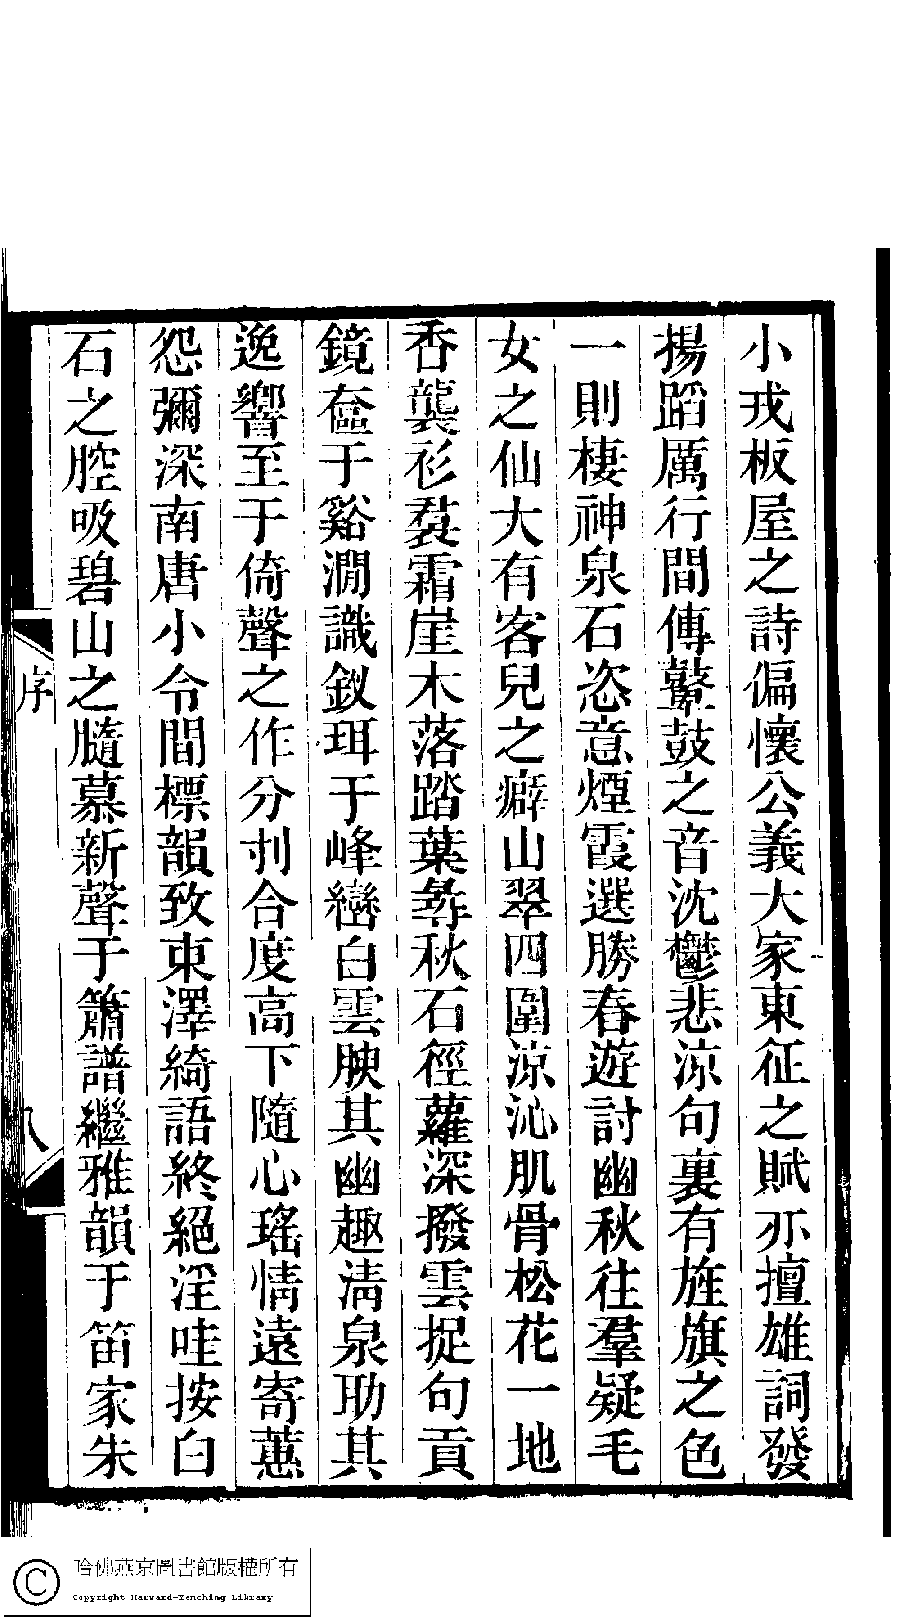 小戎板屋之詩偏懷公義大家東征之賦亦擅雄詞發
揚蹈厲行間傳鼙鼓之音沈鬱悲涼句裏有旌旗之色
一則棲神泉石恣意煙霞選勝春遊討幽秋往羣疑毛
女之仙大有客兒之癖山翠四圍涼沁肌骨松花一地
香襲衫裠霜崖木落踏葉尋秋石徑蘿深撥雲捉句貢
鏡奩于谿澗識釵珥于峰巒白雲腴其幽趣淸泉助其
逸響至于倚聲之作分刌合度高下隨心瑤情遠寄蕙
怨彌深南唐小令間標韻致東澤綺語終絕淫哇按白
石之腔吸碧山之髓慕新聲于簫譜繼雅韻于笛家朱
序
八
哈佛燕京圖書館版權所有
Copyright Harvard-Yenching Library